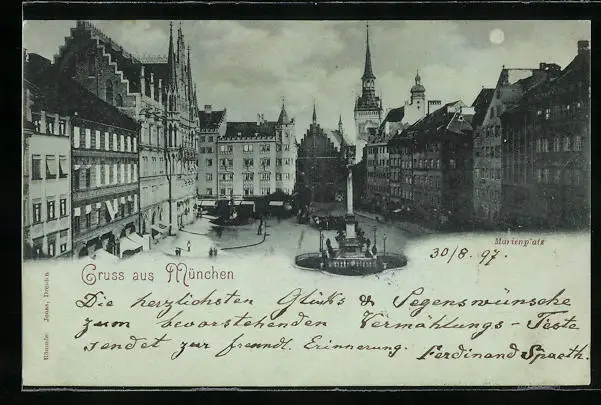 Marienplatz
30/8. 97.
Gruss aus München
Die herzlichsten Glücks & Segenswünsche
zum bevorstehenden Vermählungs-Feste
sendet zur freundl. Erinnerung. Ferdinand Spaeth.
Jonas, Dresden